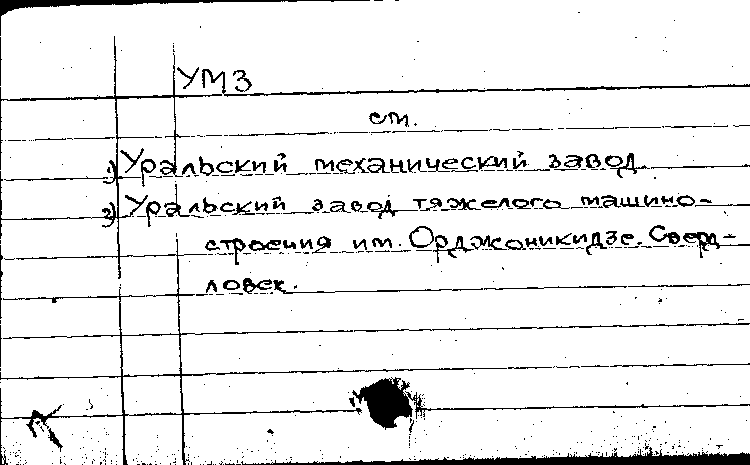 УМЗ
см.
1) Уральский механический завод.
2) Уральский завод тяжелого машино-
строения им. Орджоникидзе. Сверд-
ловск.